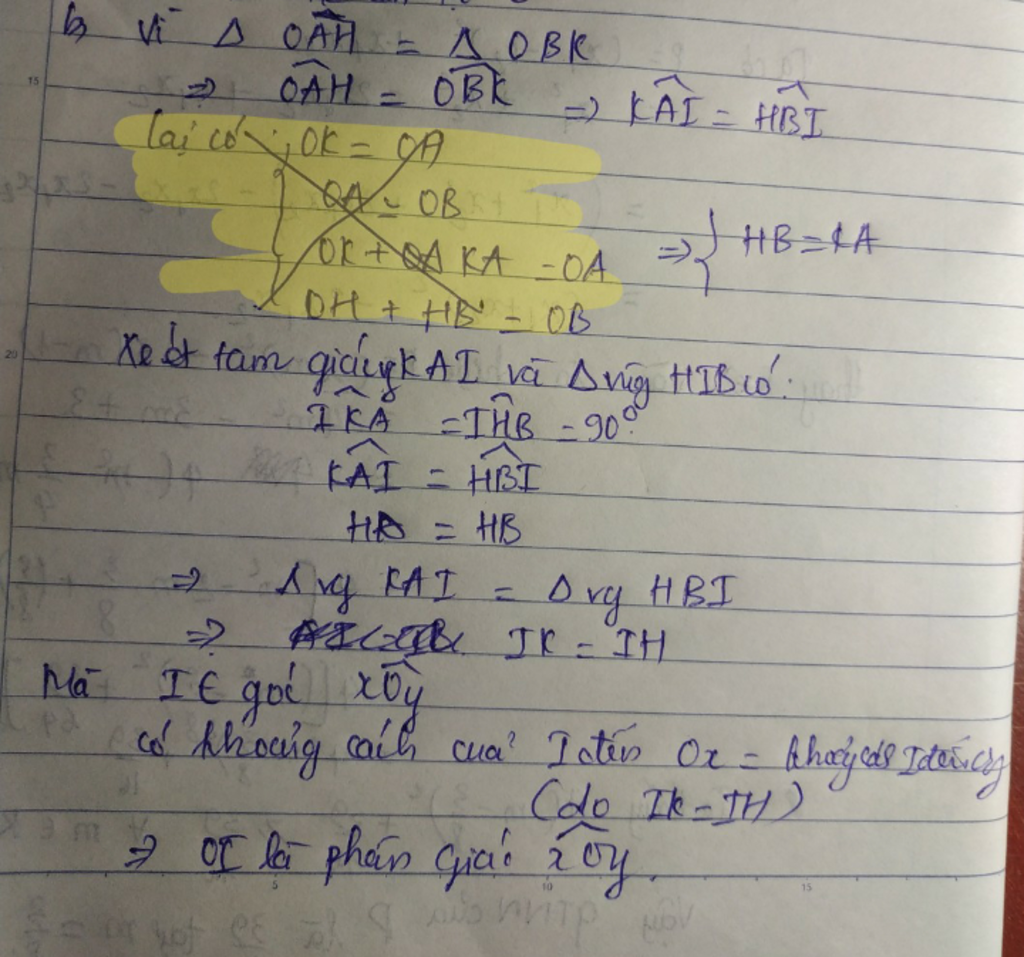 b, Vì Δ OAH = Δ OBK
=> OAH = OBK => KAI = HBI
lại có : OK = OA
OA = OB
OK + KA = OA => HB = KA
OH + HB = OB
Xét tam giác vg KAI và Δ vg HIB có:
IKA = IHB = 90°
KAI = HBI
HB = HB
=> Δ vg KAI = Δ vg HBI
=> IK = IH
Mà I ∈ góc xOy
có khoảng cách của I đến Ox = I đến
(do IK = IH)
=> OI là phân giác xOy.